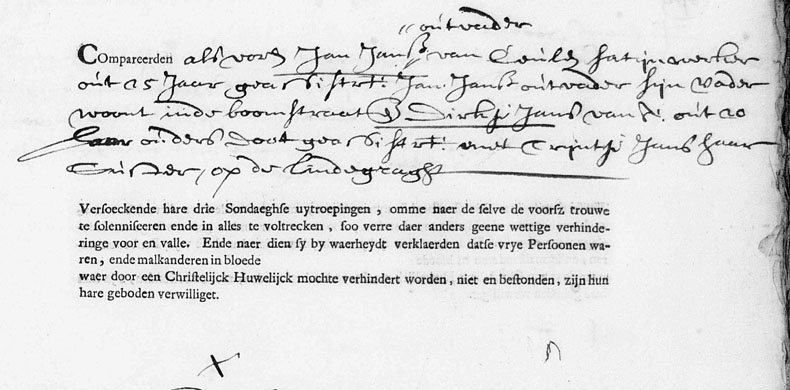 outvader
Compareerden als vorẽ Jan Jansz van Ceulẽ satijnwerker
out 25 Jaar geassisteert: Jan Jansz outvader sijn vader
woont inde boomstraat & Dirkje Jans van A: out 20
Jaar ouders doot geassisteert: met Trijntje Jans haar
Suster, op de Lindegraght
Versoeckende hare drie Sondaeghse uytroepingen, omme naer de selve de voorsz trouwe
te solenniseren ende in alles te voltrecken, soo verre daer anders geene wettige verhinde-
ringe voor en valle. Ende naer dien sy by waerheydt verklaerden datse vrye Persoonen wa-
ren, ende malkanderen in bloede
waer door een Christelijck Huwelijck mochte verhindert worden, niet en bestonden, zijn hun
hare geboden verwilliget.